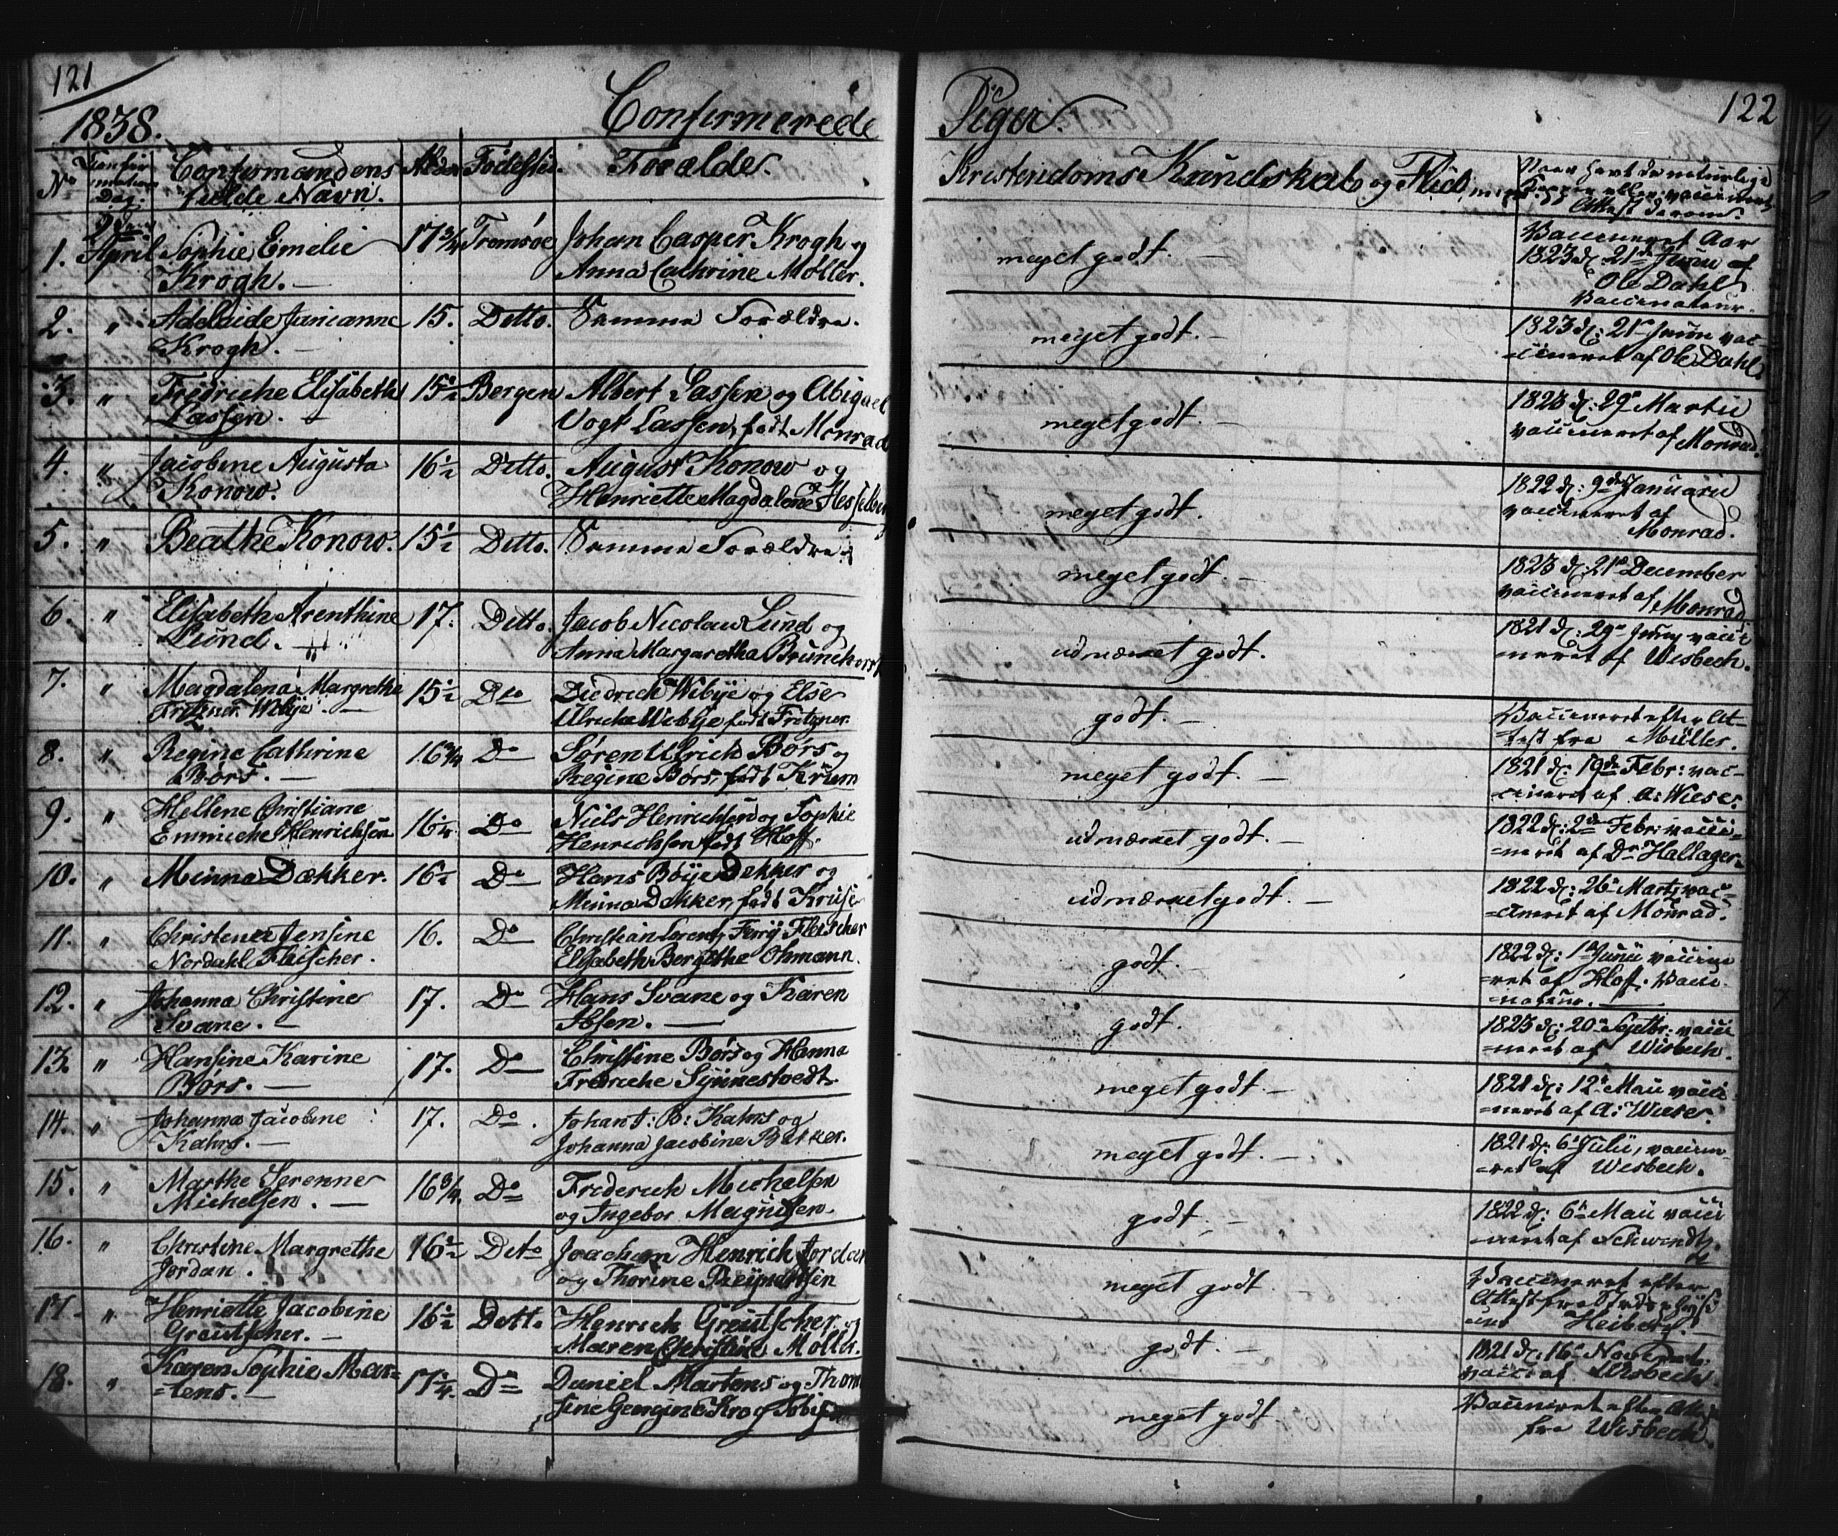 121
1838.
Confirmerede
Piger.
122
No
Confir-
mations
Dag.
Confirmandens
fulde Navn.
Alder
Fødested.
Forældre.
Kristendoms Kundskab og Flid
1. 9de April Sophie Emelie 17 3/4 Tromsøe Johan Casper Krogh og
Krogh. Anna Cathrine Møller.
meget godt.
Vaccineret Aar
1823 d: 21de Junii af
Ole Dahl
Vaccinateur.
2. " Adelaide Janianne 15. Ditto. Samme Forældre.
Krogh.
meget godt.
1823 d: 21de Junii vac-
cineret af Ole Dahl.
3. " Fredriche Elisabeth 15 1/2 Bergen Albert Lassen og Abigael
Lassen. Vogt Lassen, født Monrad
meget godt.
1823 d: 29de Martii
vaccineret af Monrad
4. " Jacobine Augusta 16 1/2 Ditto. August Konow og
Konow. Henriette Magdalene Hesselberg
meget godt.
1822 d: 9de Januarii
vaccineret af
Monrad.
5. " Beathe Konow. 15 1/2 Ditto. Samme Forældre.
meget godt.
1823 d: 21de December
vaccineret af Monrad
6. " Elisabeth Arenthine 17. Ditto. Jacob Nicolai Lund og
Lund. Anna Margaretha Brunchorst
udmærket godt.
1821 d: 29de Juny vacci
neret af Wisbech.
7. " Magdalena Margrethe 15 1/2 Dto Diedrich Wibye og Else
Wibye. Ulricha Wibye, født Fritzner.
godt.
Vaccineret efter At-
test fra Müller.
8. " Regine Cathrine 16 3/4 Do Søren Ulrich Børs og
Børs. Regine Børs, født Krum
meget godt.
1821 d: 19de Febr: vac-
cineret af A: Wiese.
9. " Hellene Christiane 16 1/4 Do Niels Henrichsen og Sophie
Emmiche Henrichsen Henrichsen født Hoff.
udmærket godt.
1822 d: 2de Febr: vacci-
neret af Dr Hallager.
10. " Minna Dækker. 16 1/2 Do Hans Böye Dekker og
Minna Dekker, født Kruse
udmærket godt.
1822 d: 26de Marts vac-
cineret af Monrad.
11. " Christence Jensine 16. Do Christian Lorentz Ferry Fleischer
Nordahl Fleischer. Elisabeth Bergithe Ohmann.
godt.
1822 d: 1de Junii vaccine
ret af Hoff. Vacci-
nateur.
12. " Johanna Christine 17. Do Hans Svane og Karen
Svane. Ibsen.
godt.
1823 d: 20de Septbr: vacci
neret af Wisbech.
13. " Hansine Karine 17. Do Christine Børs og Hanna
Børs. Fredriche Synnestvedt.
meget godt.
1821 d: 12te Maii vacci
neret af A: Wiese.
14. " Johanna Jacobine 17. Do. Johan J: B: Kahrs og
Kahrs. Johanna Jacobine Bekker.
meget godt.
1821 d: 6te Julii, vaccine-
ret af Wisbech.
15. " Marthe Serenne 16 3/4 Do Friderich Michelsen
Michelsen. og Ingebor Magnisen.
godt.
1822 d: 6te Maii vacci
neret af Schwindt.
16. " Christine Margrethe 16 1/2 Dito Joachim Henrich Jordan
Jordan. og Thorine Reÿndtsen
meget godt.
Vaccineret efter
Attest fra
Heiberg.
17. " Henriette Jacobine 16 1/2 Ditto Henrich Greütscher og
Greütscher. Maren Christine Møller.
godt.
1821 d: 16de Novembr.
vacci af Wisbech
18. " Karen Sophie Mar- 17 1/4 Do Daniel Martens og Thom
tens. sine Georgine Krog
meget godt.
Vaccineret efter Attest
fra Wisbech.